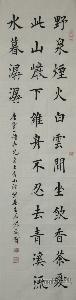 野泉煙火白雲間坐飲香茶愛
此山巖下維舟不忍去青溪流
水暮潺潺